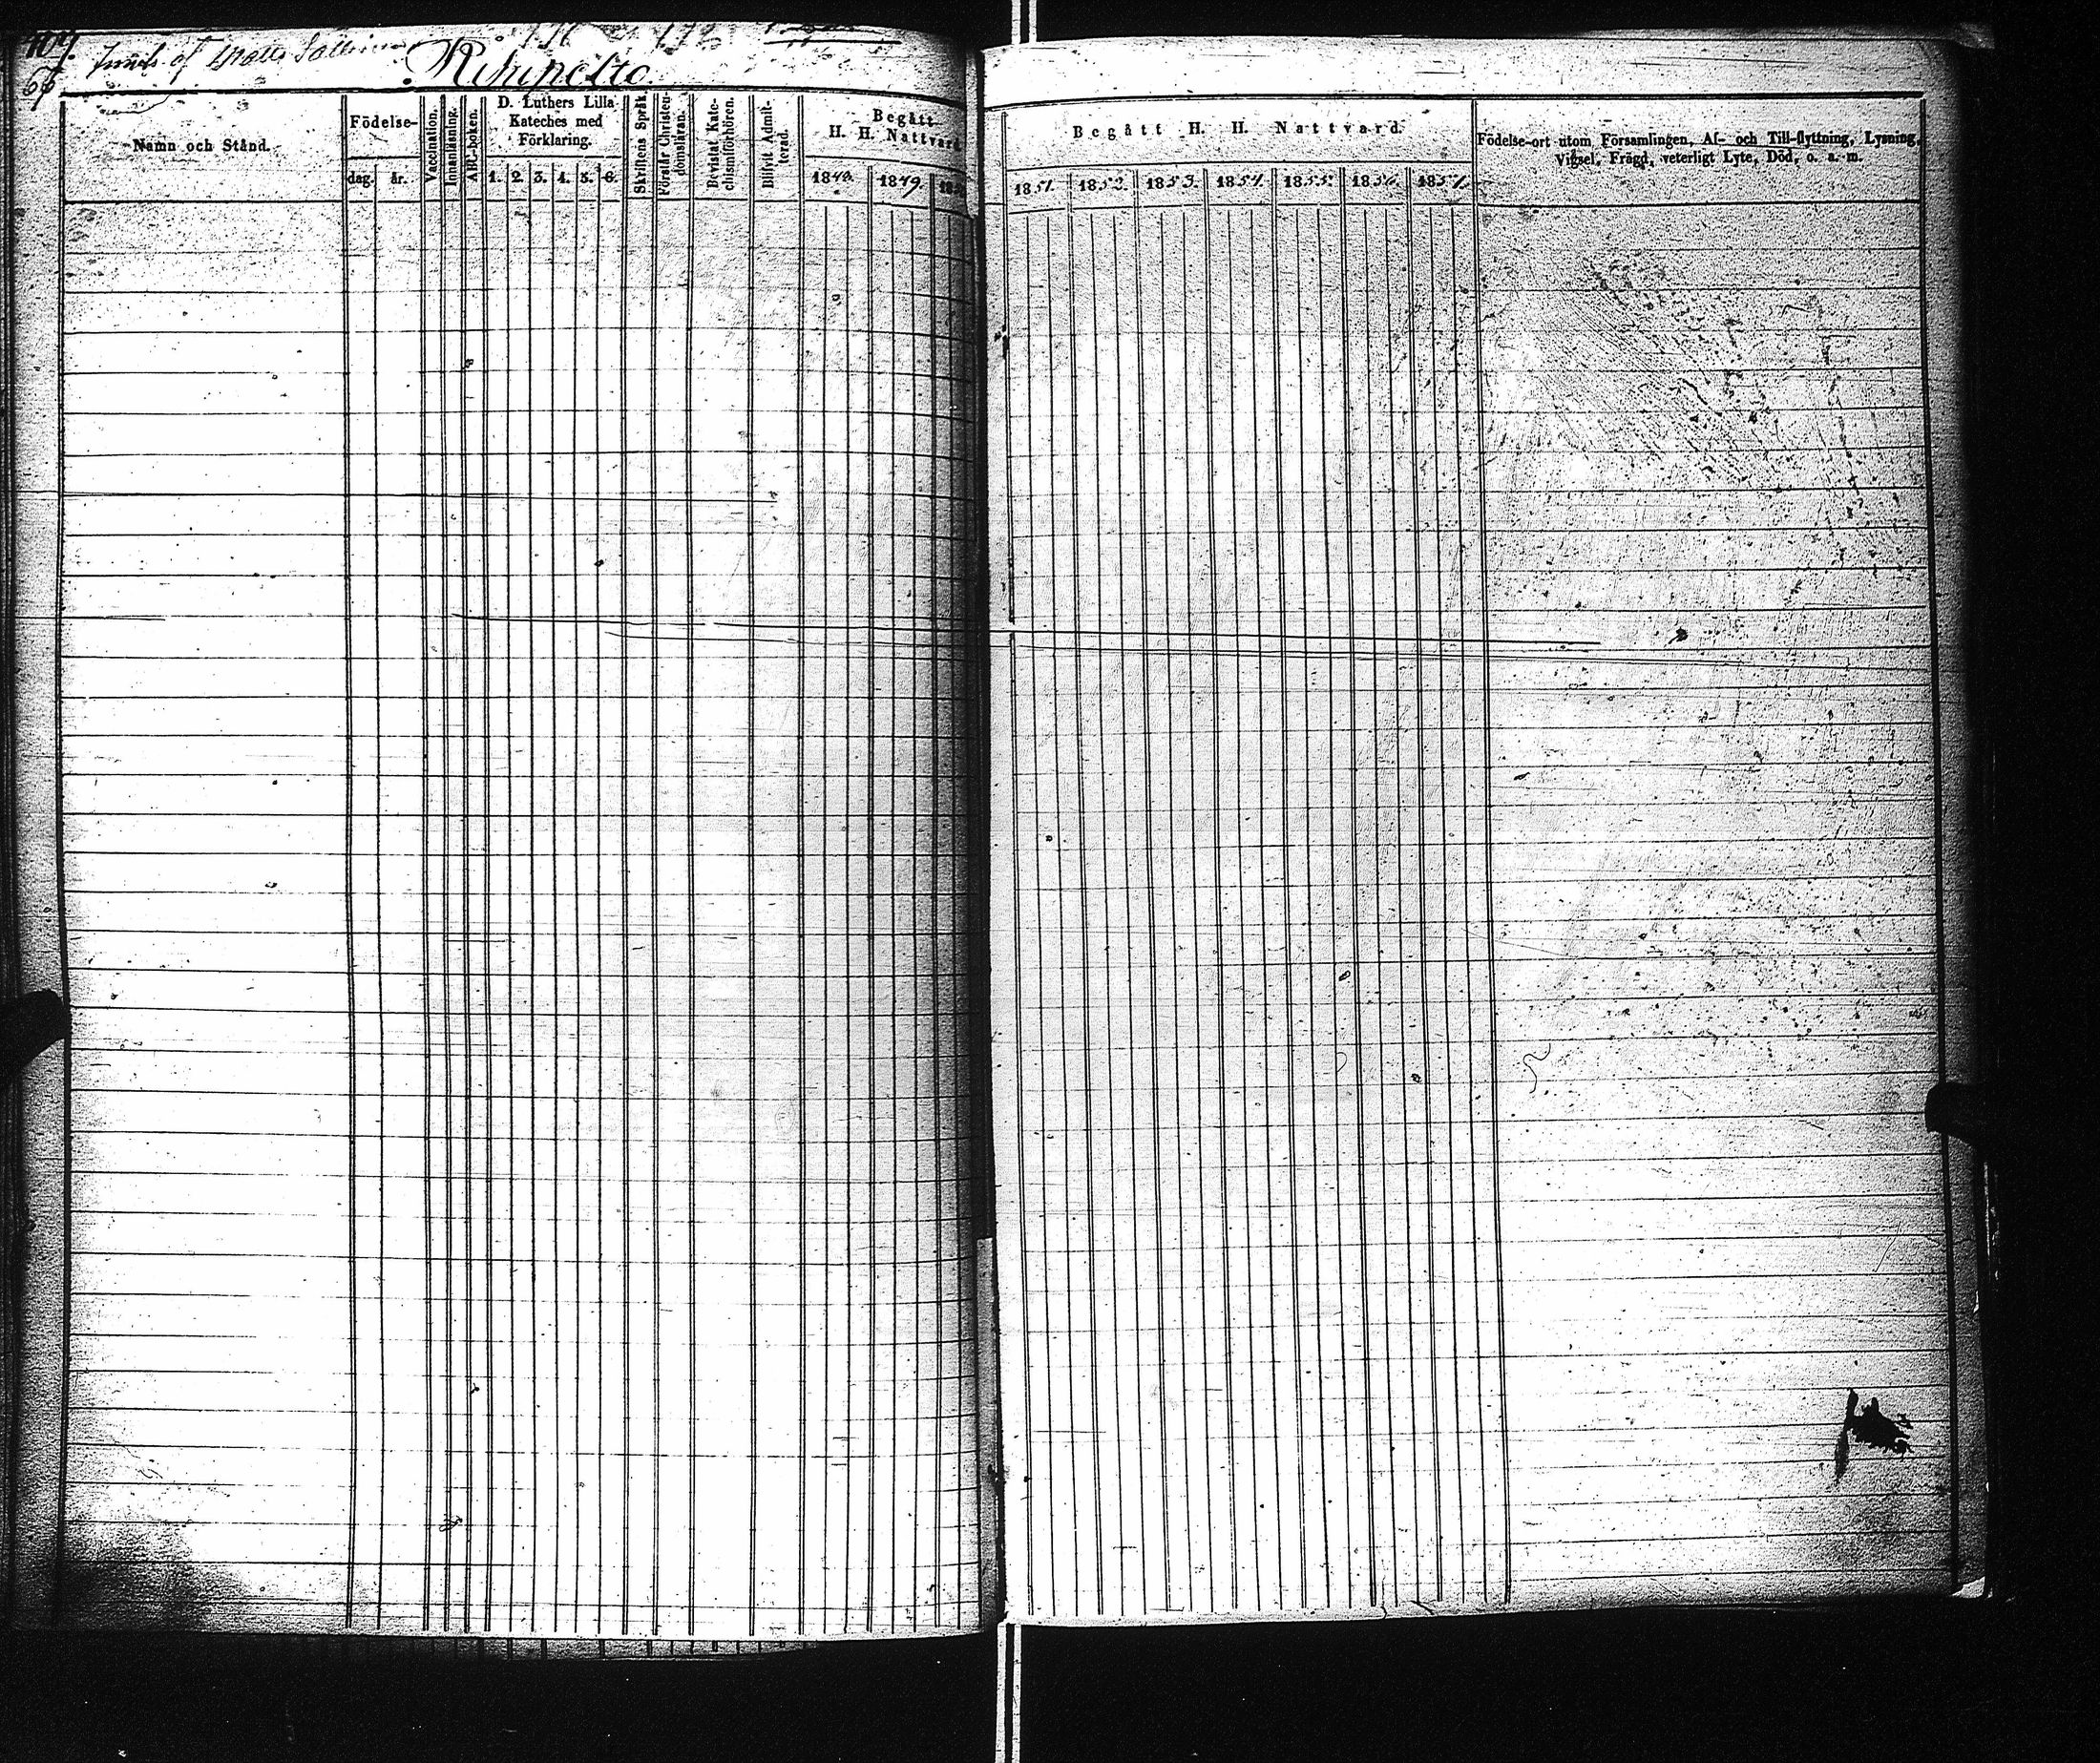 107.
67
af
Rihipelto.
Namn och Stånd.
Födelse-
dag. år.
Vaccination.
Innanläsning.
ABC-boken.
D. Luthers Lilla
Kateches med
Förklaring.
1. 2. 3. 4. 5. 6.
Skriftens Språk.
Förstår Christen-
domsläran.
Bevistat Kate-
chismiförhören.
Blifvit Admit-
terad.
Begått
H. H. Nattvard.
1848. 1849. 1850
Begått H. H. Nattvard.
1851. 1852. 1853. 1854. 1855. 1856. 1857.
Födelse-ort utom Församlingen, Af- och Till-flyttning, Lysning,
Vigsel, Frägd, veterligt Lyte, Död, o. a. m.